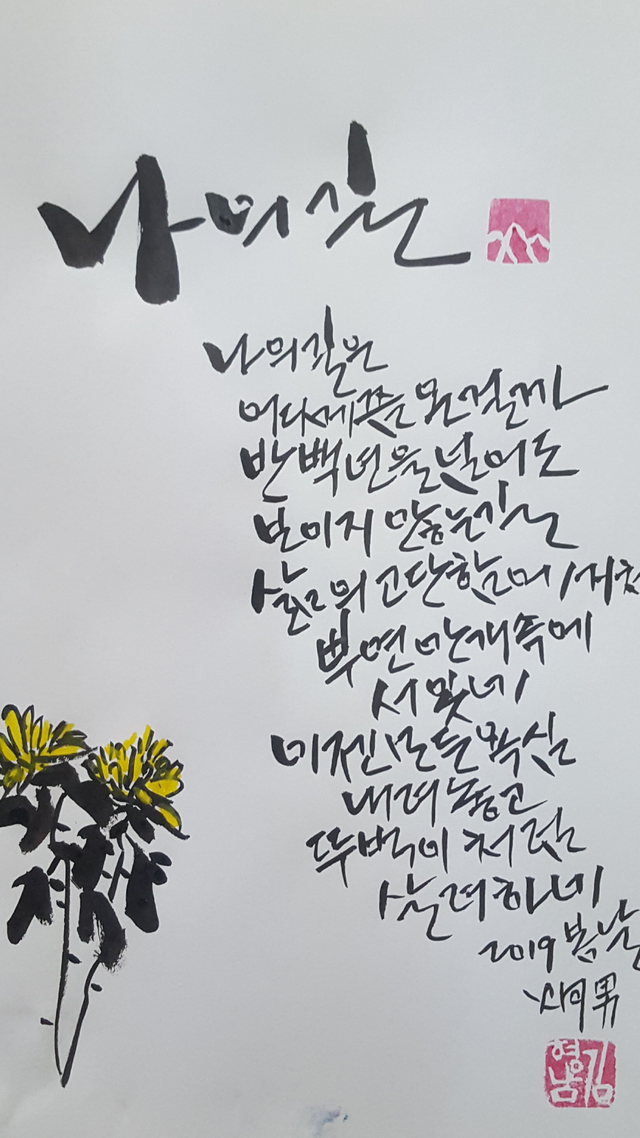 나의 길
나의 길은
어디에쯤 온 걸까
반백년을 넘어도
보이지 않는 길
삶의 고단함에 지쳐
뿌연 안개 속에
서 있네
이젠 모든 욕심
내려놓고
뚜벅이처럼
살려하네
2019 봄날
男
형남김